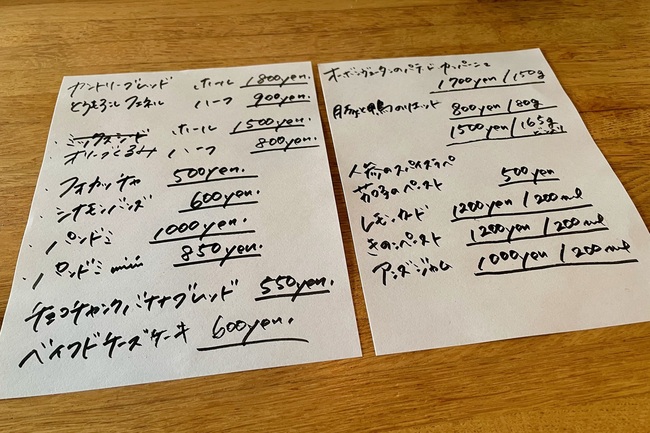 カントリーブレッド ホール 1800yen.
とうもろこしフェンネル ハーフ 900yen.
ミックスシード ホール 1500yen.
オリーブくるみ ハーフ 800yen.
フォカッチャ 500yen.
シナモンバンズ 600yen.
パンドミ 1000yen.
パンドミ mini 850yen.
チョコチャンクバナナブレッド 550yen.
ベイクドチーズケーキ 600yen.
オーボンヴュータンのパテドカンパーニュ
1700yen/150g
豚と鴨のリエット 800yen/80g
1500yen/165g
人参のスパイスラペ
茄子のペースト 500yen
レモンカード 1200yen/200ml
きのこペースト 1200yen/200ml
アンズジャム 1000yen/200ml